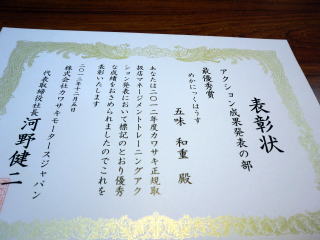 表彰状
アクション成果発表の部
最優秀賞
めかにっくはうす
五味 和重 殿
あなたは二〇一二年度カワサキ正規取
扱店マネージメントトレーニングアク
ション発表において標記のとおり優秀
な成績をおさめられましたのでこれを
表彰いたします
二〇一二年十二月五日
株式会社カワサキモータースジャパン
代表取締役社長 河野健二